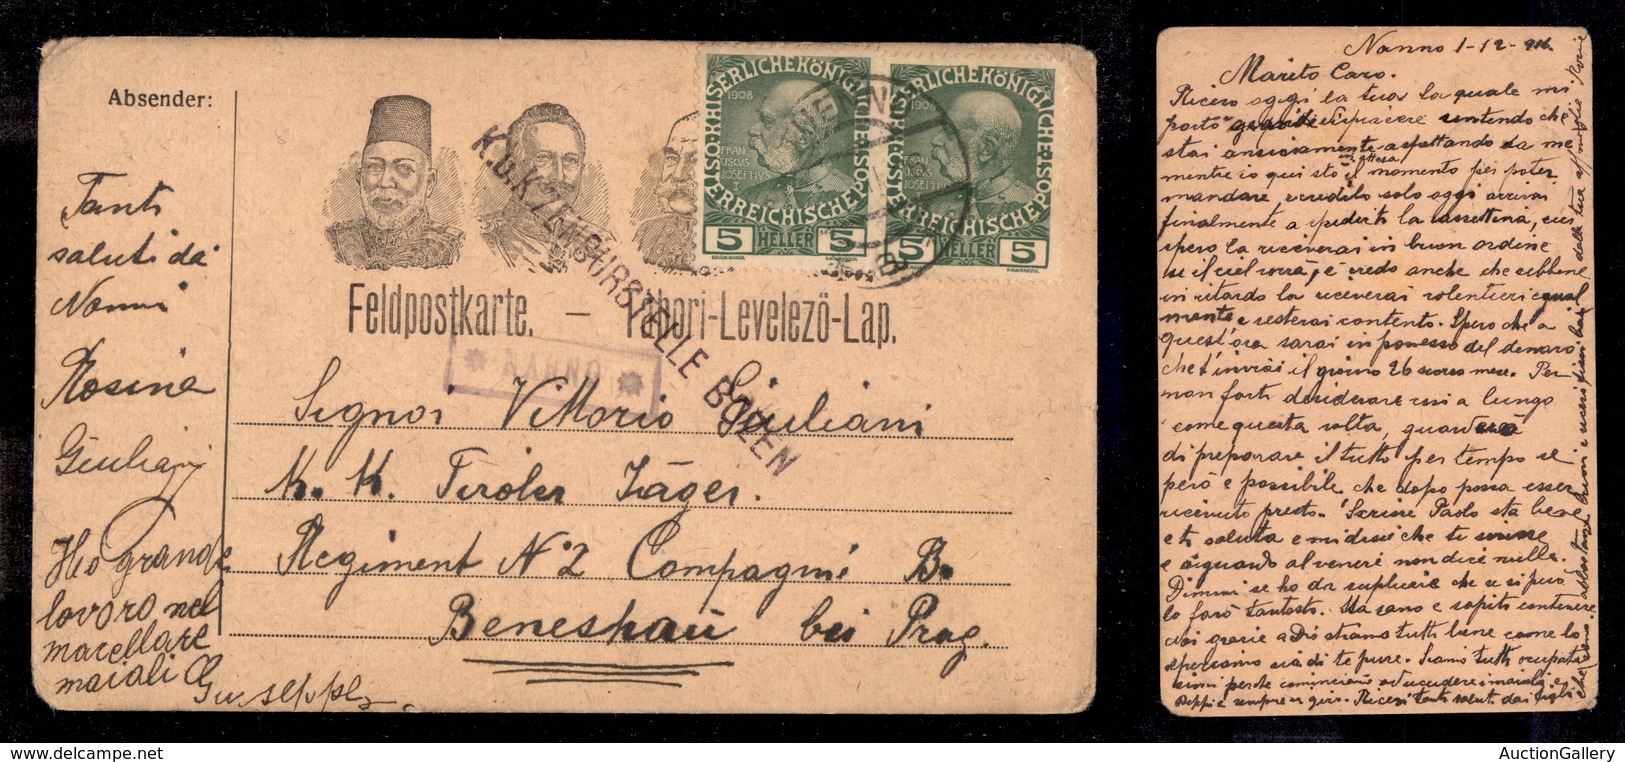 Absender:
Tanti
saluti da
Nanni
Rosina
Giuliani
Ho grande
lavoro nel
macellare
maiali
Giuseppe
Feldpostkarte. — Tábori-Levelezö-Lap.
K.U.K. ZENSURSTELLE BOZEN
NANNO
KAISERLICHE KÖNIGLICHE ÖSTERREICHISCHE POST
1908
FRAN
CISCVS
JOSEPHVS
I
5 HELLER 5
KAISERLICHE KÖNIGLICHE ÖSTERREICHISCHE POST
1908
FRAN
CISCVS
JOSEPHVS
I
5 HELLER 5
Signor Vittorio Giuliani
K. K. Tiroler Jäger.
Regiment N°2 Compagnie B.
Beneschau bei Prag.
Nanno 1-12-916
Marito Caro.
Ricevo oggi la tua la quale mi
portò grande dispiacere sentendo che
stai ansiosamente aspettando da me
mentre io qui stò in attesa il momento per poter
mandare solo oggi arrivai
finalmente a spedirti la cassettina,
spero la riceverai in buon ordine
se il ciel vorrà, e credo anche che sebbene
in ritardo la riceverai volentieri egual
mente e resterai contento. Spero che a
quest'ora sarai in possesso del denaro
che t'inviai il giorno 26 scorso mese. Per
non farti desiderare così a lungo
come questa volta,
di preparare il tutto per tempo se
però è possibile che dopo possa esser
ricevuto presto. Scrisse Paolo sta bene
e ti saluta e mi disse che ti scrisse
e riguardo al venire non dice nulla.
Dimmi se ho da suplicare che se si può
lo farò tantosto. Ma sano e
Noi grazie a Dio stiamo tutti bene come lo
speriamo sia di te pure. Siamo tutti ocupati
e sempre in giro. Ricevi tanti saluti dai figli
AuctionGallery